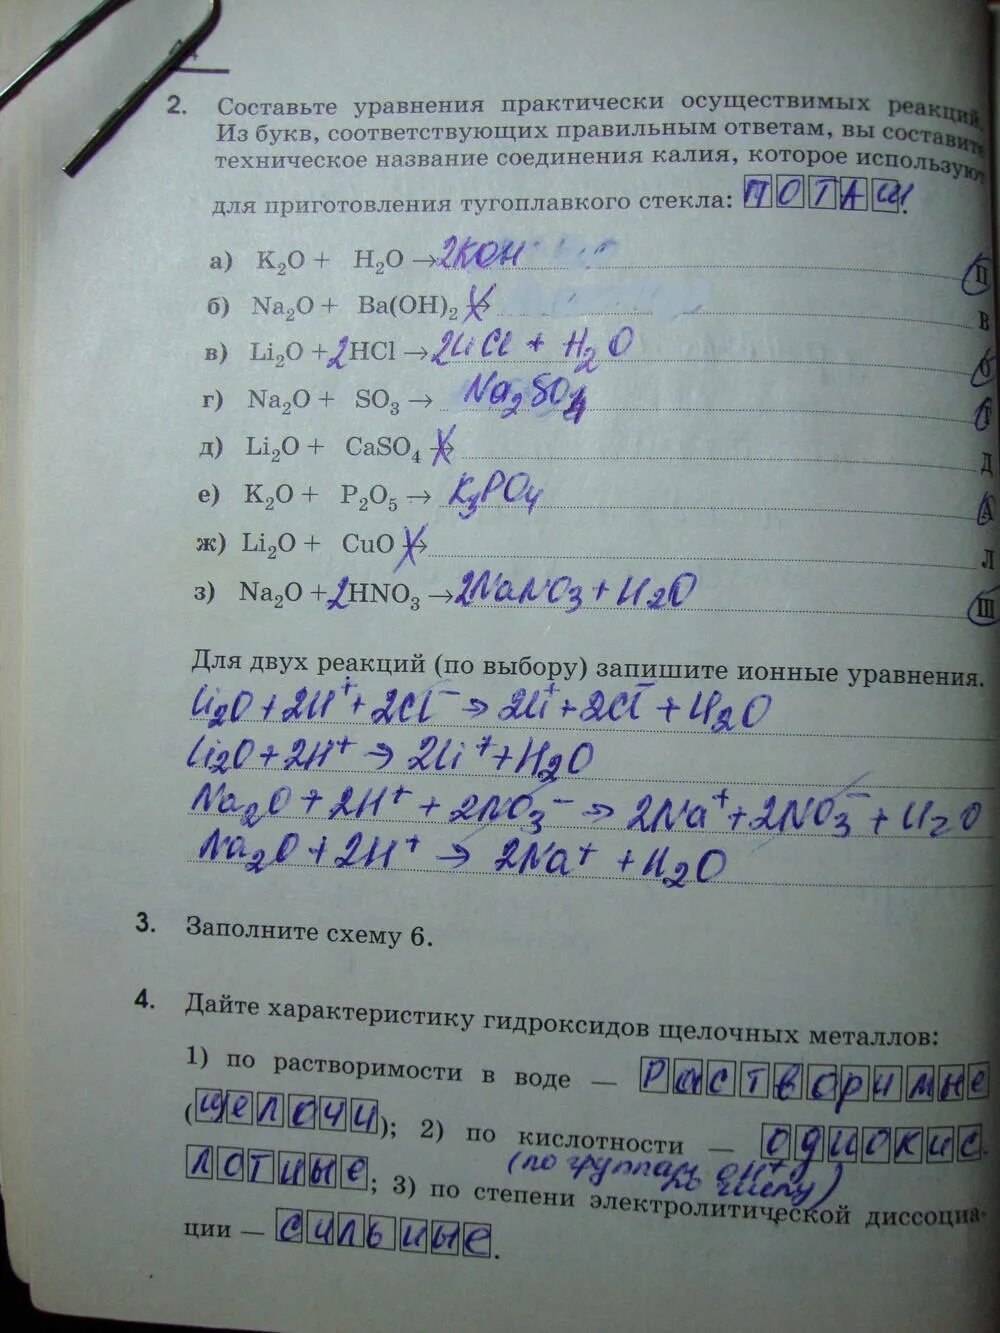 2. Составьте уравнения практически осуществимых реакций.
Из букв, соответствующих правильным ответам, вы составите
техническое название соединения калия, которое используют
для приготовления тугоплавкого стекла: ПОТАШ.
а) K₂O + H₂O → 2KOH П
б) Na₂O + Ba(OH)₂ → В
в) Li₂O + 2HCl → 2LiCl + H₂O О
г) Na₂O + SO₃ → Na₂SO₄ Т
д) Li₂O + CaSO₄ → Д
е) K₂O + P₂O₅ → K₃PO₄ А
ж) Li₂O + CuO → Л
з) Na₂O + 2HNO₃ → 2NaNO₃ + H₂O Ш
Для двух реакций (по выбору) запишите ионные уравнения.
Li₂O + 2H⁺ + 2Cl⁻ → 2Li⁺ + 2Cl⁻ + H₂O
Li₂O + 2H⁺ → 2Li⁺ + H₂O
Na₂O + 2H⁺ + 2NO₃⁻ → 2Na⁺ + 2NO₃⁻ + H₂O
Na₂O + 2H⁺ → 2Na⁺ + H₂O
3. Заполните схему 6.
4. Дайте характеристику гидроксидов щелочных металлов:
1) по растворимости в воде — растворимые
(щелочи); 2) по кислотности — однокис-
(по группам OH числу)
лотные; 3) по степени электролитической диссоциа-
ции — сильные.